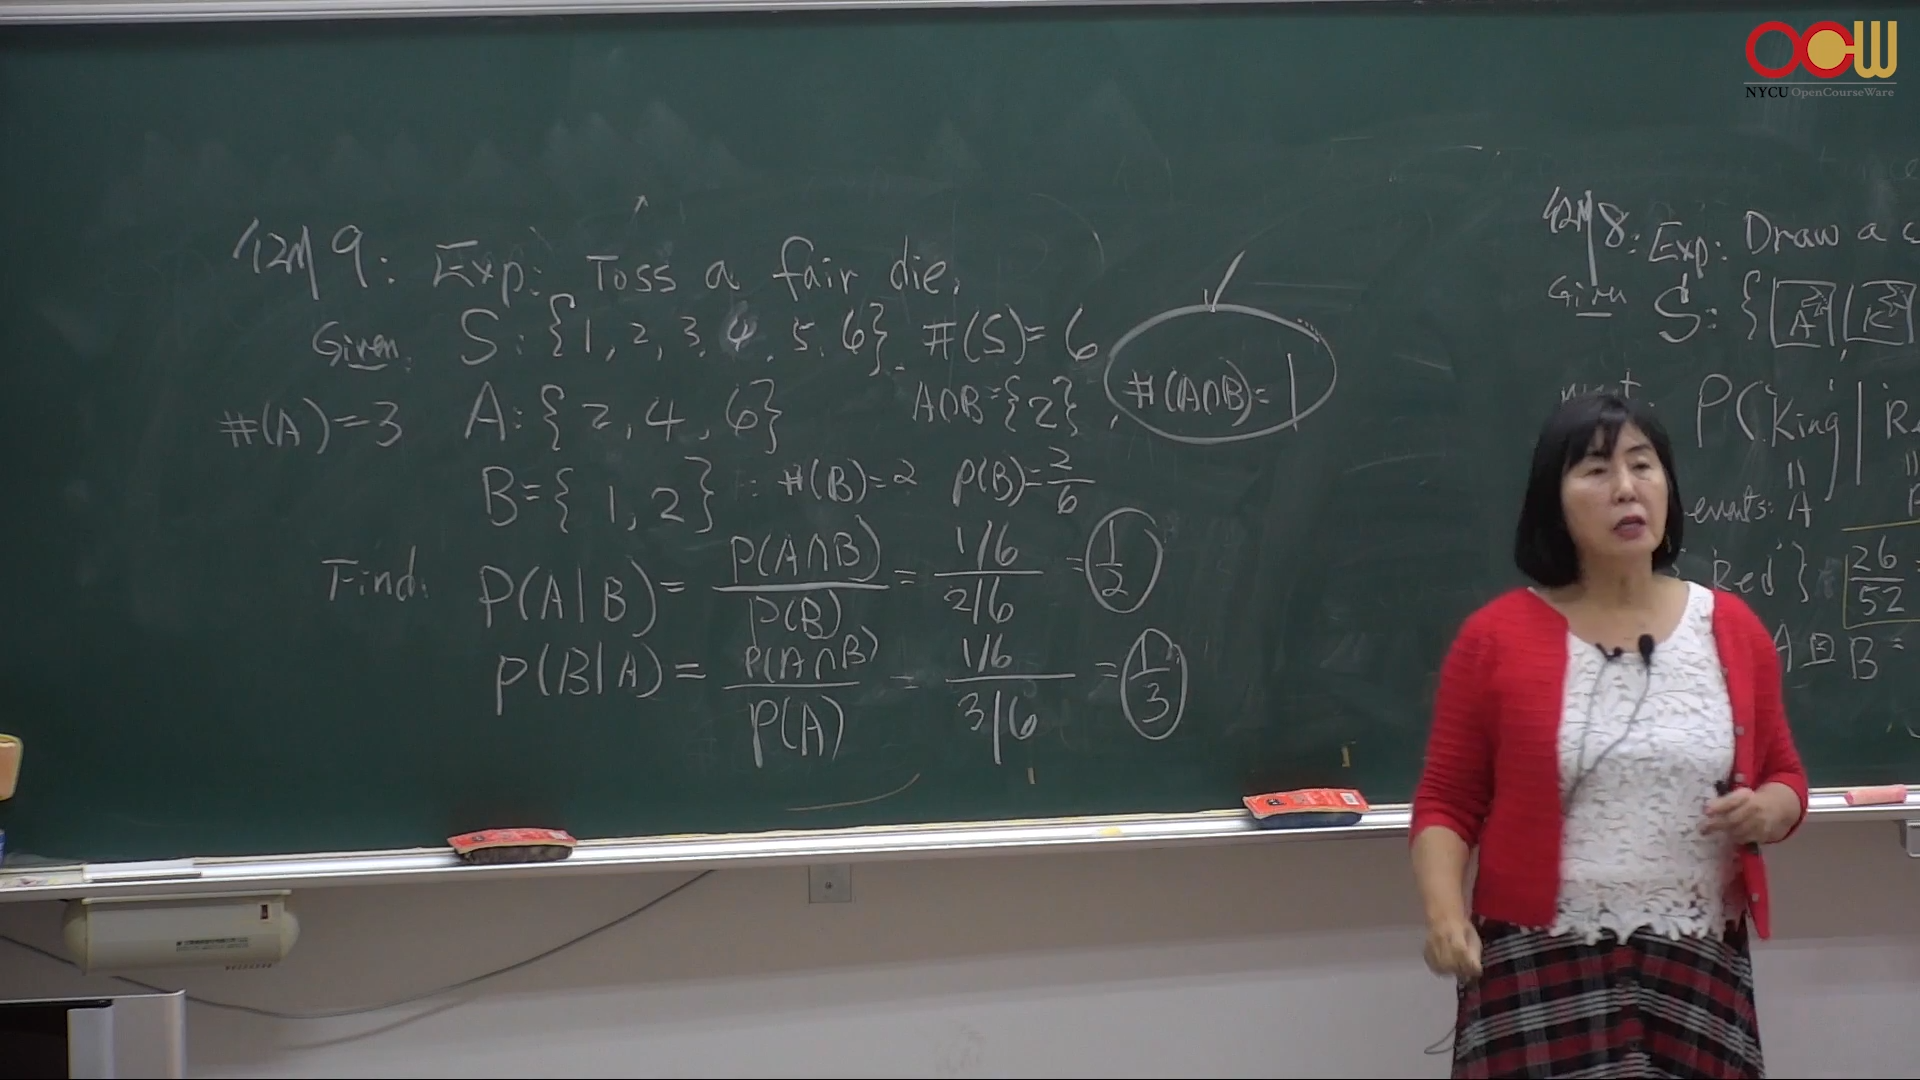 OCW
NYCU OpenCourseWare
例9: Exp: Toss a fair die.
Given: S: {1, 2, 3, 4, 5, 6}, #(S)=6
#(A)=3 A: {2, 4, 6} A∩B={2}, #(A∩B)=1
B={1, 2} ∴ #(B)=2 P(B)=2/6
Find: P(A|B)= P(A∩B)/P(B) = (1/6)/(2/6) = 1/2
P(B|A)= P(A∩B)/P(A) = (1/6)/(3/6) = 1/3
例8: Exp: Draw a
Given S: {A K
P(King |
events: A
Red} 26/52
A B =